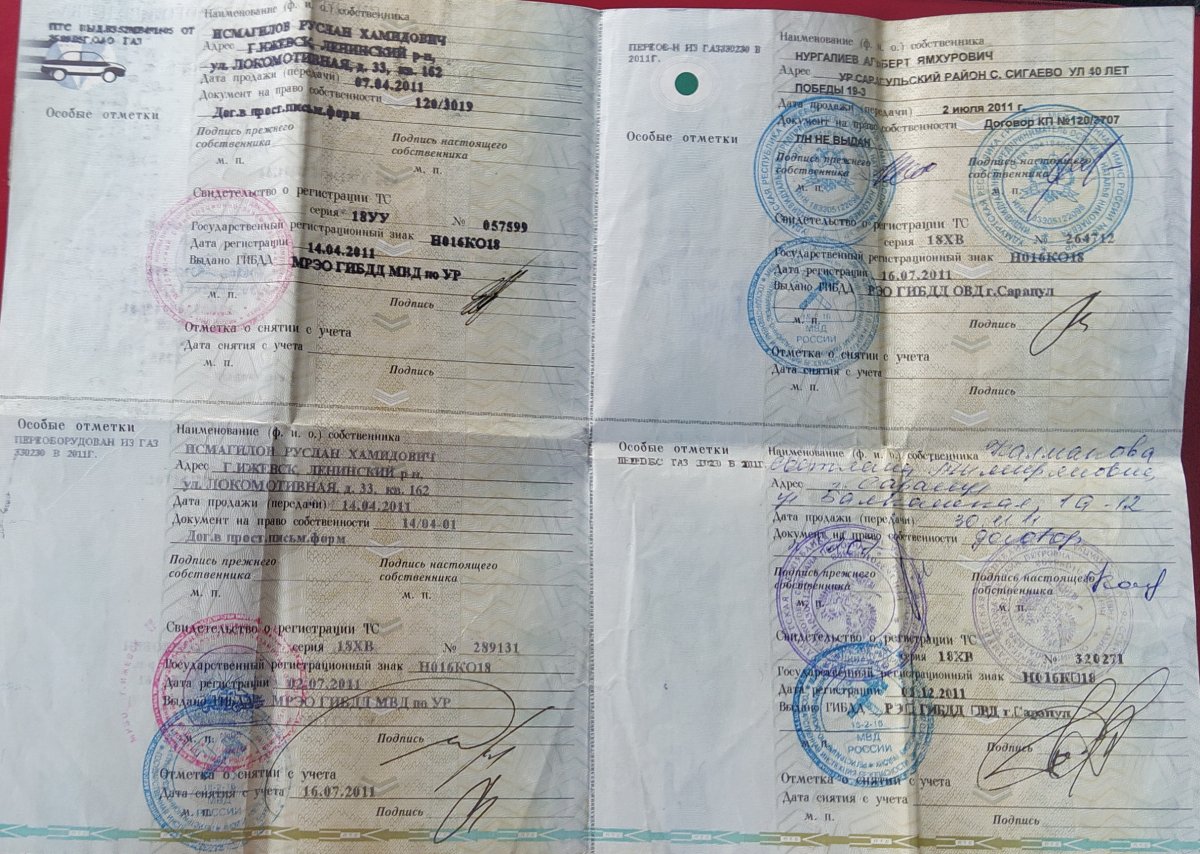 ПТС ВЫДАН
ОАО ГАЗ
Особые отметки
Наименование (ф. и. о.) собственника
ИСМАГИЛОВ РУСЛАН ХАМИДОВИЧ
Адрес Г.ИЖЕВСК, ЛЕНИНСКИЙ р-н,
ул. ЛОКОМОТИВНАЯ, д. 33, кв. 162
Дата продажи (передачи) 07.04.2011
Документ на право собственности 120/3019
Дог.в прост.письм.форм
Подпись прежнего собственника
Подпись настоящего собственника
м. п.
м. п.
Свидетельство о регистрации ТС
серия 18УУ № 057599
Государственный регистрационный знак Н016КО18
Дата регистрации 14.04.2011
Выдано ГИБДД МРЭО ГИБДД МВД по УР
м. п.
Подпись
Отметка о снятии с учета
Дата снятия с учета
м. п.
Подпись
ПЕРЕОБ-Н ИЗ ГАЗ330230 В
2011Г.
Особые отметки
Наименование (ф. и. о.) собственника
НУРГАЛИЕВ АЛЬБЕРТ ЯМХУРОВИЧ
Адрес УР.САРАПУЛЬСКИЙ РАЙОН С. СИГАЕВО УЛ 40 ЛЕТ
ПОБЕДЫ 19-3
Дата продажи (передачи) 2 июля 2011 г.
Документ на право собственности Договор КП №120/2707
Т/Н НЕ ВЫДАН
Подпись прежнего собственника
Подпись настоящего собственника
м. п.
м. п.
Свидетельство о регистрации ТС
серия 18ХВ № 264712
Государственный регистрационный знак Н016КО18
Дата регистрации 16.07.2011
Выдано ГИБДД РЭО ГИБДД ОВД г.Сарапул
м. п.
МВД
РОССИИ
Подпись
Отметка о снятии с учета
Дата снятия с учета
м. п.
Подпись
Особые отметки
ПЕРЕОБОРУДОВАН ИЗ ГАЗ
330230 В 2011Г.
Наименование (ф. и. о.) собственника
ИСМАГИЛОВ РУСЛАН ХАМИДОВИЧ
Адрес Г.ИЖЕВСК, ЛЕНИНСКИЙ р-н,
ул. ЛОКОМОТИВНАЯ, д. 33, кв. 162
Дата продажи (передачи) 14.04.2011
Документ на право собственности 14/04-01
Дог.в прост.письм.форм
Подпись прежнего собственника
Подпись настоящего собственника
м. п.
м. п.
Свидетельство о регистрации ТС
серия 18ХВ № 289131
Государственный регистрационный знак Н016КО18
Дата регистрации 02.07.2011
Выдано ГИБДД МРЭО ГИБДД МВД по УР
м. п.
Подпись
Отметка о снятии с учета
Дата снятия с учета 16.07.2011
МВД
РОССИИ
м. п.
Подпись
Особые отметки
ГАЗ В 2011Г
Наименование (ф. и. о.) собственника
Адрес г. Сарапул
19-12
Дата продажи (передачи) 30.11.11
Документ на право собственности договор
Подпись прежнего собственника
Подпись настоящего собственника
м. п.
м. п.
Свидетельство о регистрации ТС
серия 18ХВ № 320271
Государственный регистрационный знак Н016КО18
Дата регистрации 01.12.2011
Выдано ГИБДД РЭО ГИБДД ОВД г.Сарапул
18-2-16
МВД
РОССИИ
Подпись
Отметка о снятии с учета
Дата снятия с учета
м. п.
Подпись